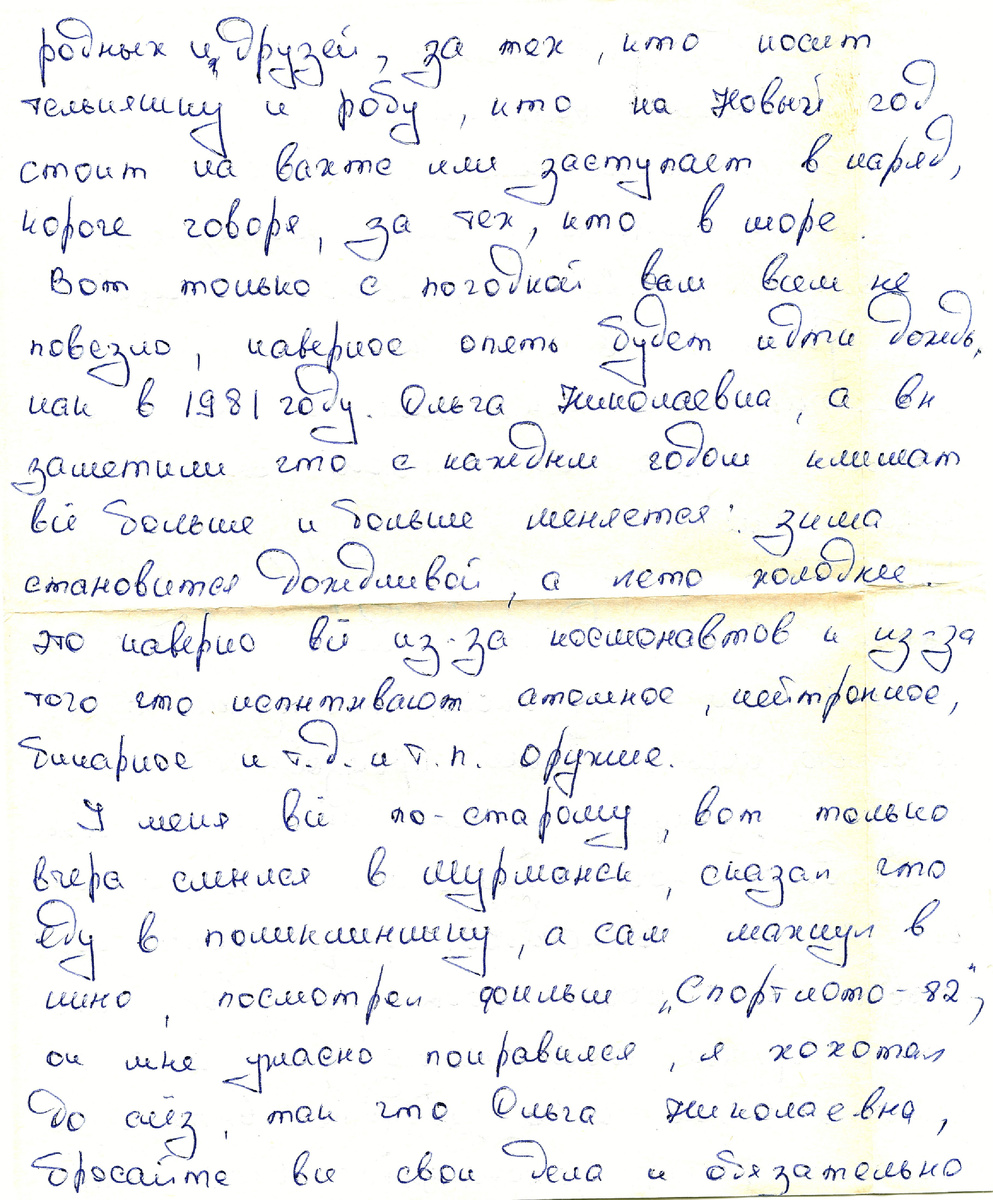 родных и друзей, за тех, кто носит
тельняшку и робу, кто на Новый год
стоит на вахте или заступает в наряд,
короче говоря, за тех, кто в море.
Вот только с погодкой вам всем не
повезло, наверное опять будет идти дождь,
как в 1981 году. Ольга Николаевна, а вы
заметили что с каждым годом климат
всё больше и больше меняется: зима
становится дождливой, а лето холоднее.
Это наверно всё из-за космонавтов и из-за
того что испытывают атомное, нейтронное,
бинарное и т.д. и т.п. оружие.
У меня всё по-старому, вот только
вчера смылся в Мурманск, сказал что
еду в поликлинику, а сам махнул в
кино, посмотрел фильм „Спортлото-82",
он мне ужасно понравился, я хохотал
до слёз, так что Ольга Николаевна,
бросайте все свои дела и обязательно